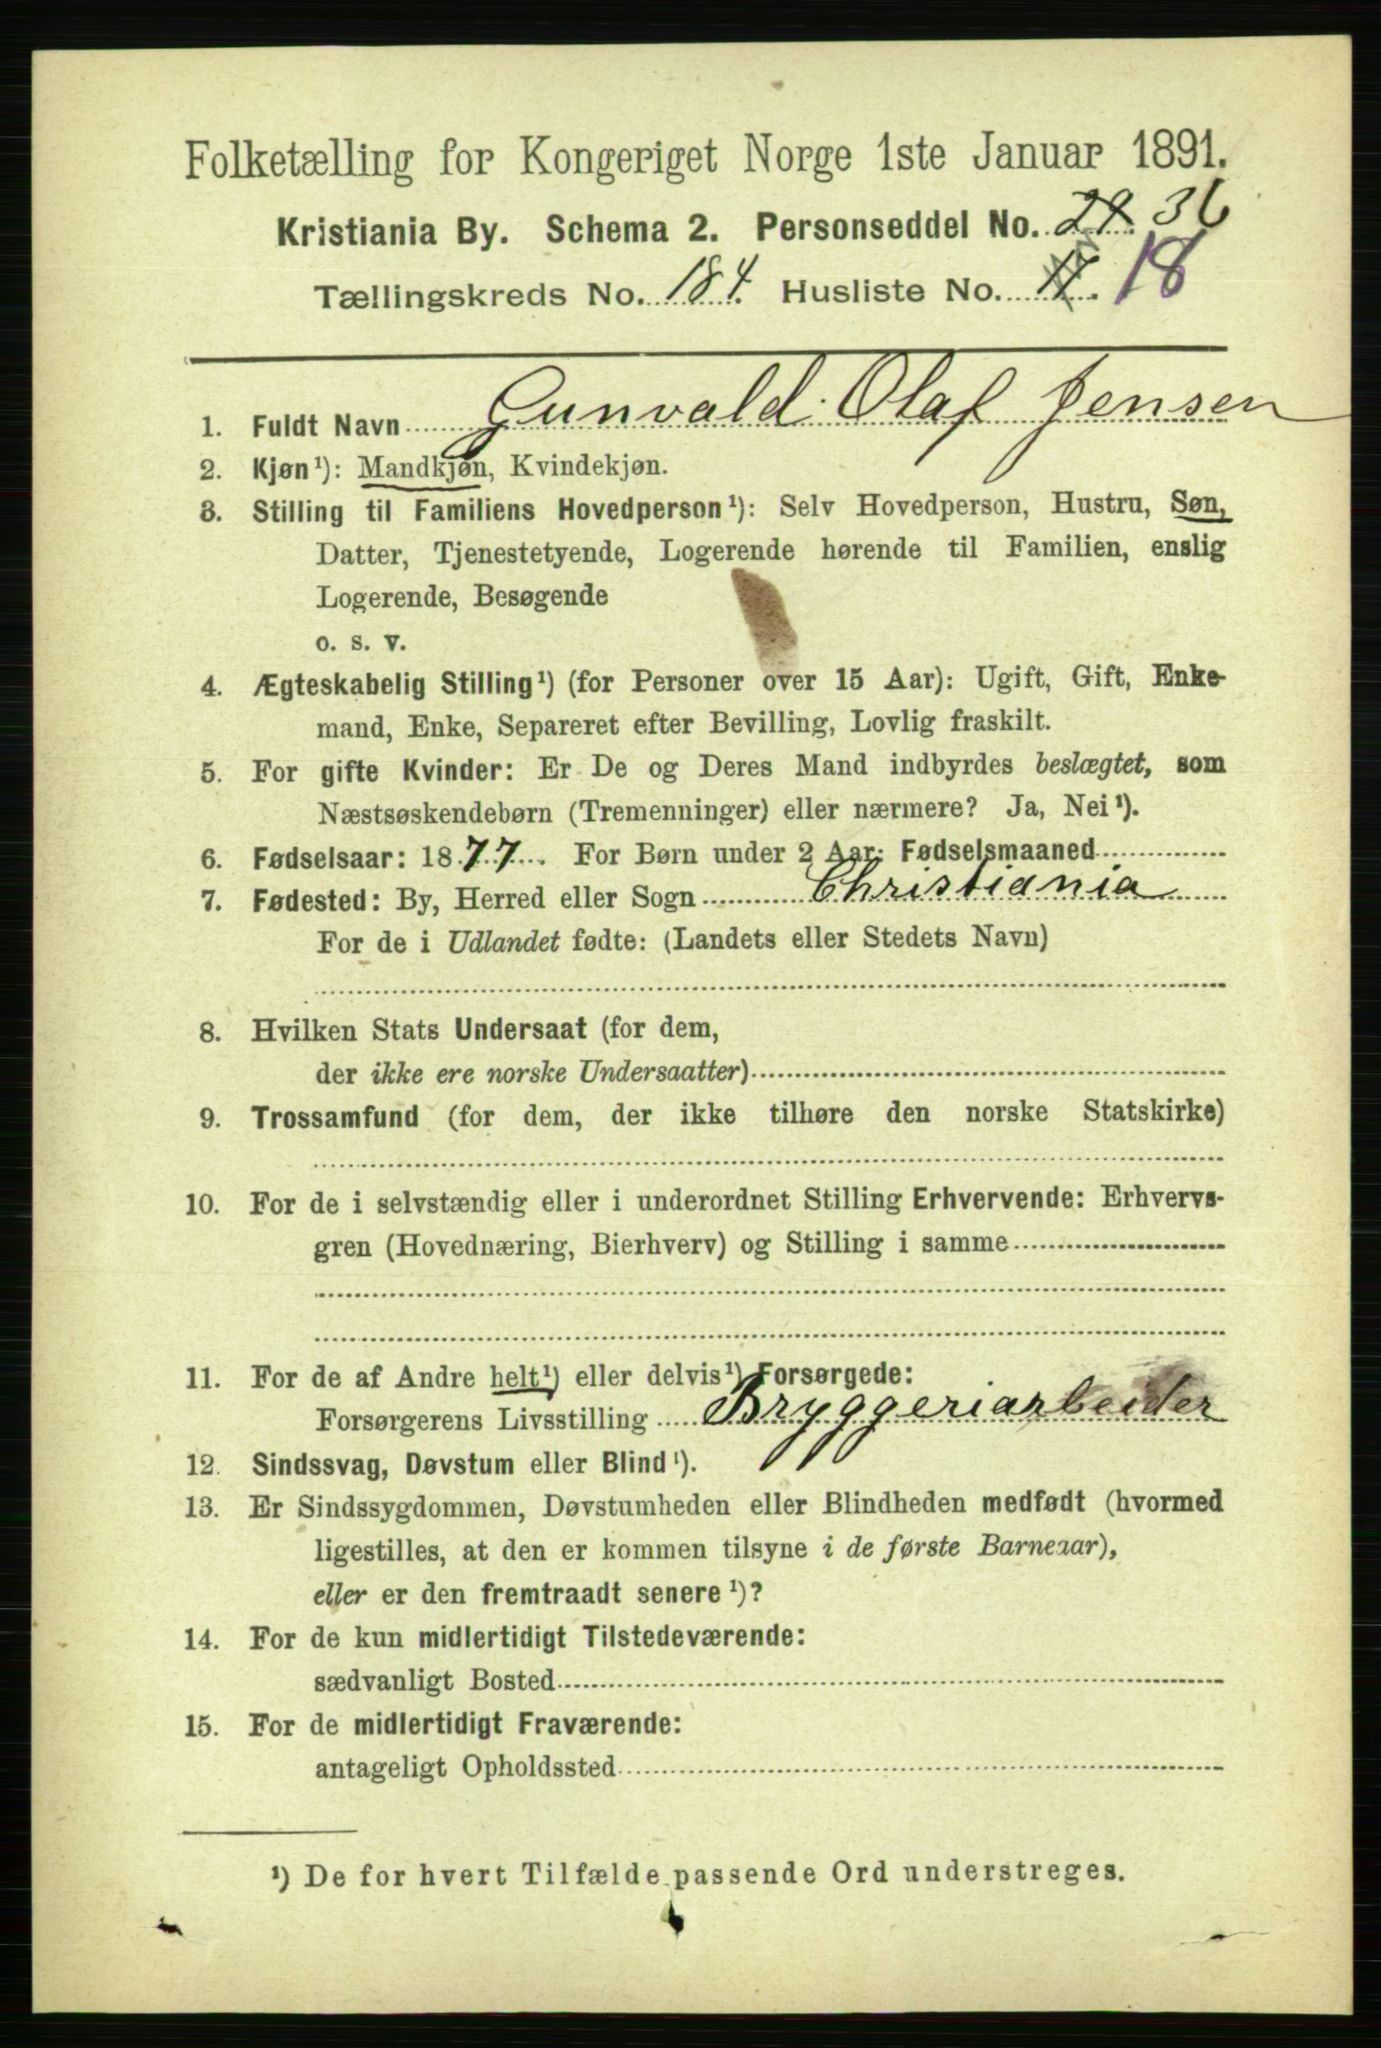 Folketælling for Kongeriget Norge 1ste Januar 1891.
Kristiania By. Schema 2. Personseddel No. 29 36
Tællingskreds No. 184. Husliste No. 17. 18
1. Fuldt Navn Gunvald Olaf Jensen
2. Kjøn¹): Mandkjøn, Kvindekjøn.
3. Stilling til Familiens Hovedperson¹): Selv Hovedperson, Hustru, Søn,
Datter, Tjenestetyende, Logerende hørende til Familien, enslig
Logerende, Besøgende
o. s. v.
4. Ægteskabelig Stilling¹) (for Personer over 15 Aar): Ugift, Gift, Enke-
mand, Enke, Separeret efter Bevilling, Lovlig fraskilt.
5. For gifte Kvinder: Er De og Deres Mand indbyrdes beslægtet, som
Næstsøskendebørn (Tremenninger) eller nærmere? Ja, Nei¹).
6. Fødselsaar: 1877. For Børn under 2 Aar: Fødselsmaaned
7. Fødested: By, Herred eller Sogn Christiania
For de i Udlandet fødte: (Landets eller Stedets Navn)
8. Hvilken Stats Undersaat (for dem,
der ikke ere norske Undersaatter)
9. Trossamfund (for dem, der ikke tilhøre den norske Statskirke)
10. For de i selvstændig eller i underordnet Stilling Erhvervende: Erhvervs-
gren (Hovednæring, Bierhverv) og Stilling i samme
11. For de af Andre helt¹) eller delvis¹) Forsørgede:
Forsørgerens Livsstilling Bryggeriarbeider
12. Sindssvag, Døvstum eller Blind¹).
13. Er Sindssygdommen, Døvstumheden eller Blindheden medfødt (hvormed
ligestilles, at den er kommen tilsyne i de første Barneaar),
eller er den fremtraadt senere¹)?
14. For de kun midlertidigt Tilstedeværende:
sædvanligt Bosted
15. For de midlertidigt Fraværende:
antageligt Opholdssted
¹) De for hvert Tilfælde passende Ord understreges.